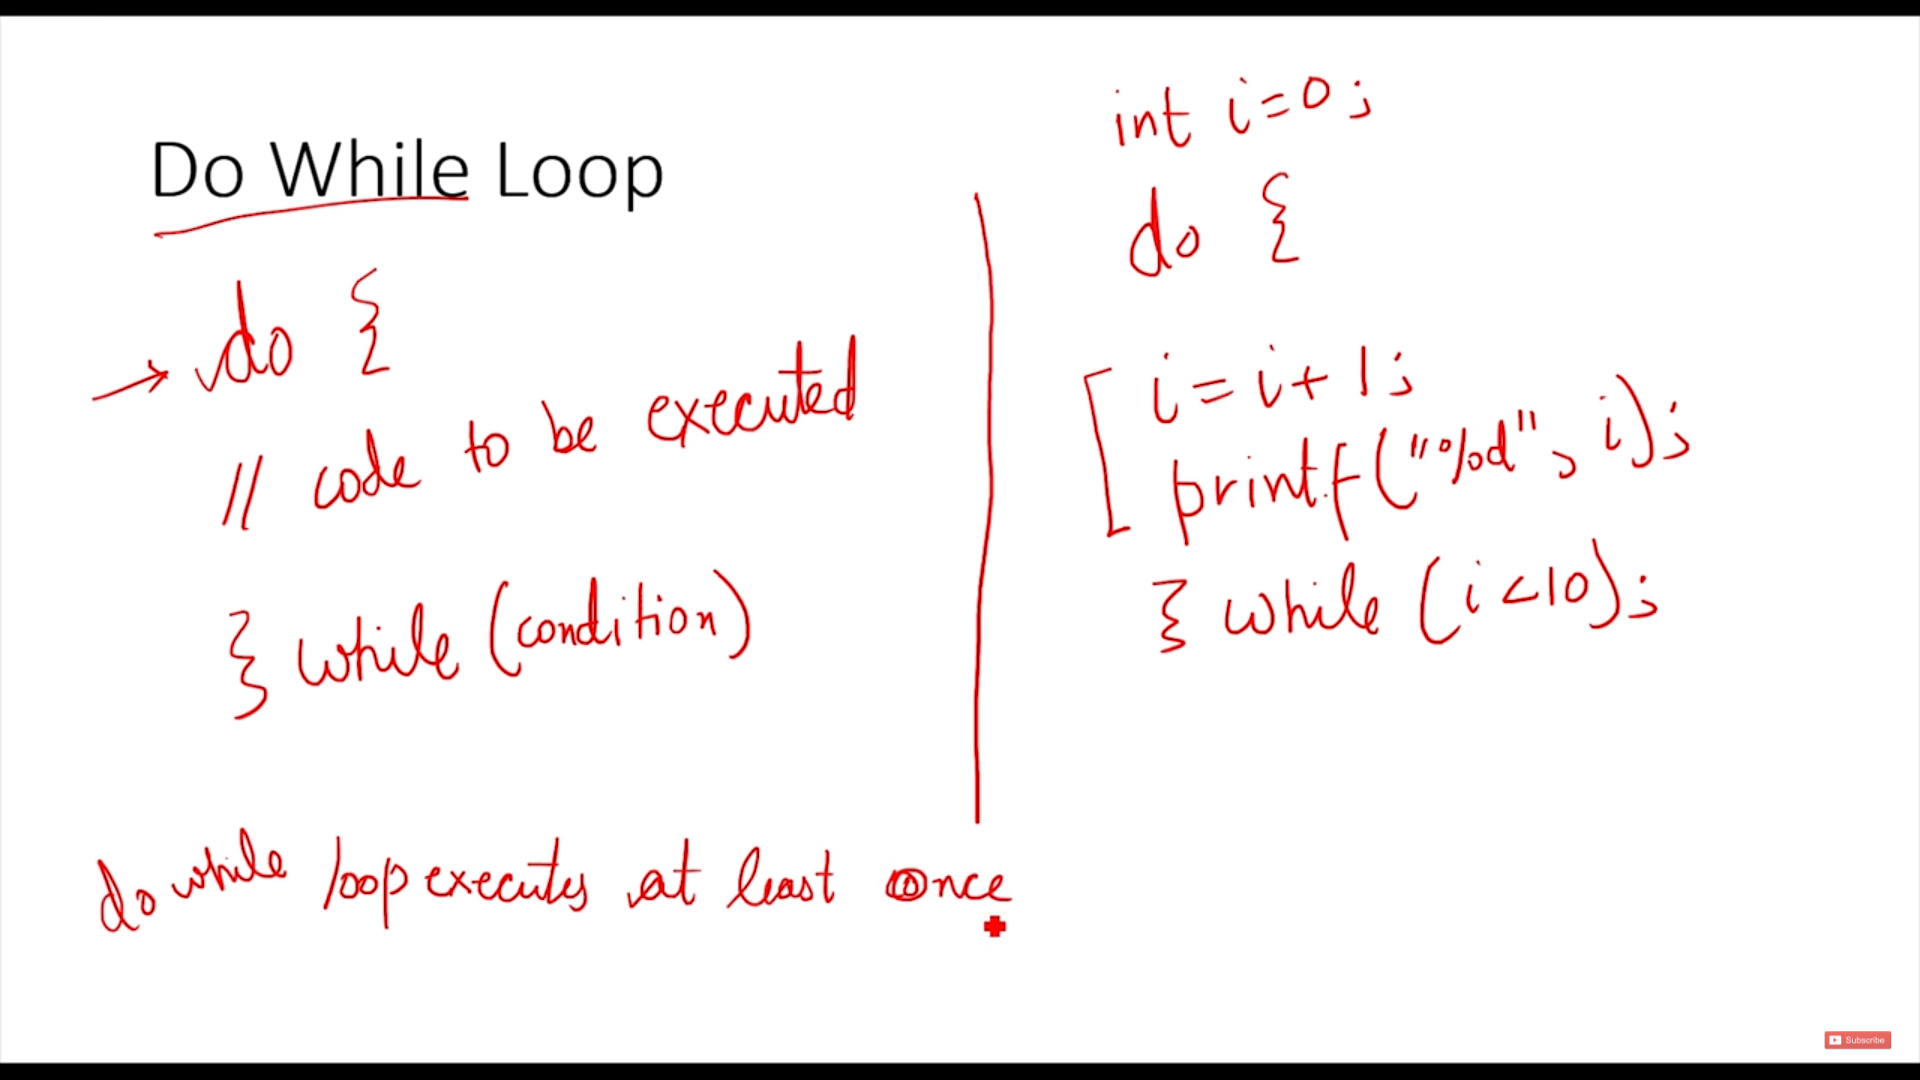 Do While Loop
do {
// code to be executed
} while (condition)
do while loop executes at least once
int i=0;
do {
i = i + 1;
printf("%d", i);
} while (i<10);
Subscribe